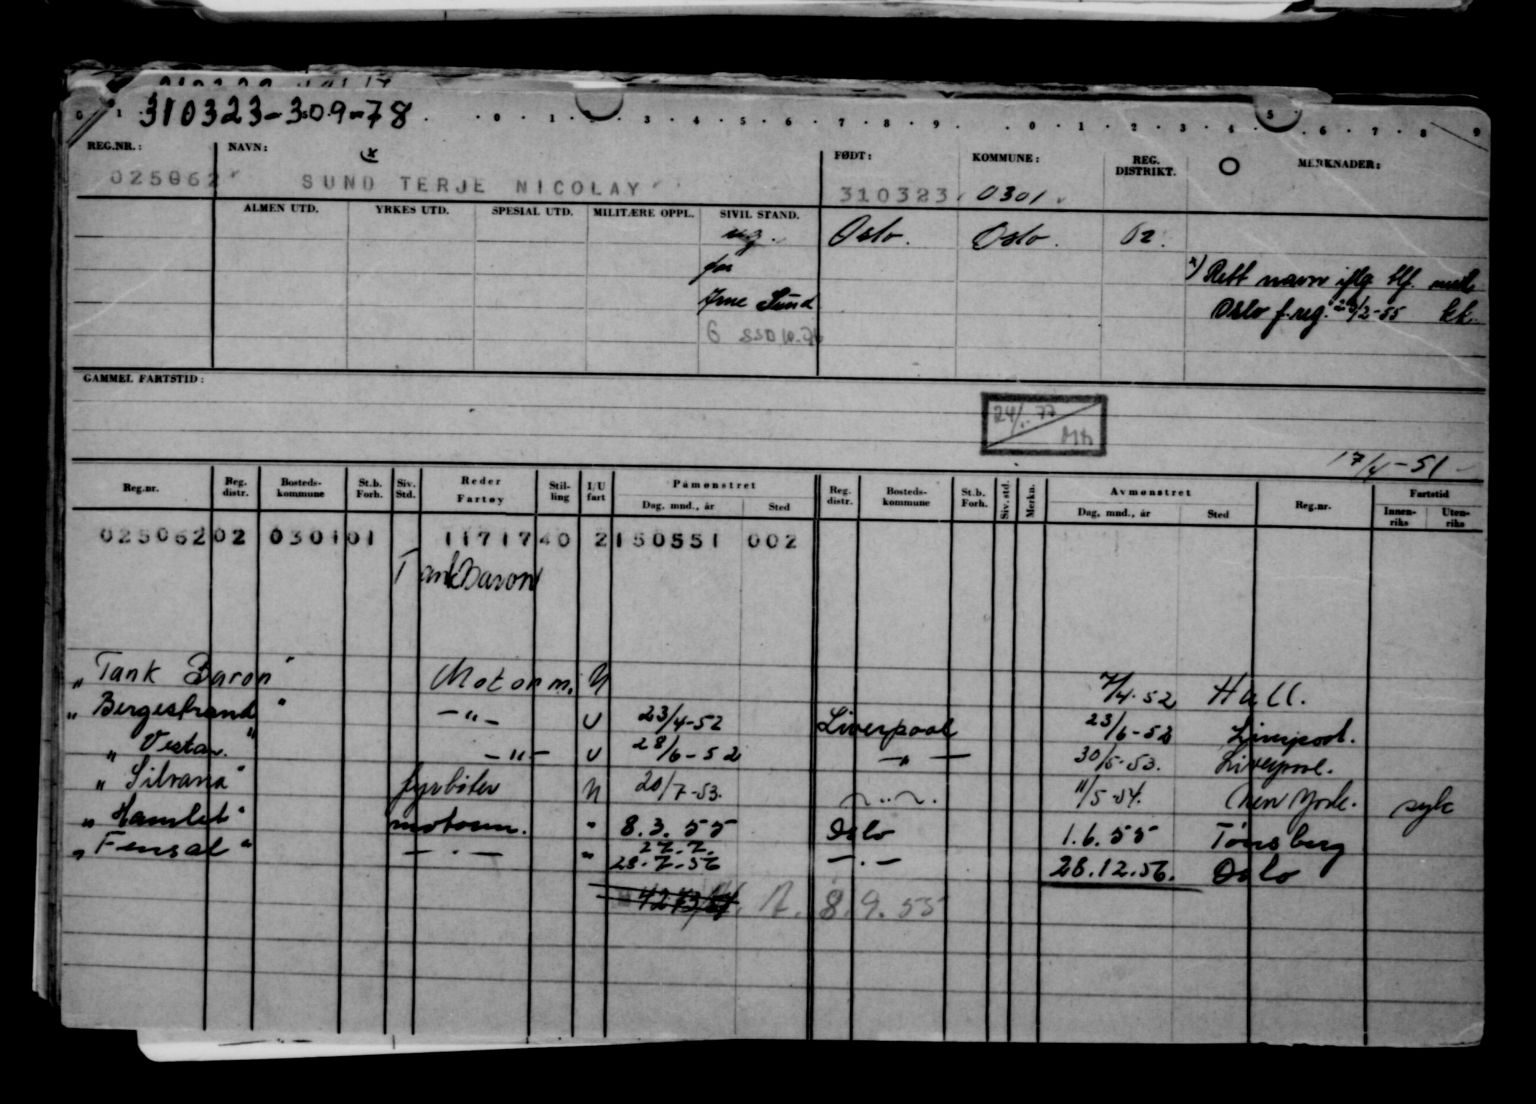 310323-309-78
0 1 0 1 2 3 4 5 6 7 8 9 0 1 2 3 4 5 6 7 8 9
REG.NR.: NAVN: FØDT: KOMMUNE: REG. DISTRIKT. MERKNADER:
025062 SUND TERJE NICOLAY 310323 0301
ALMEN UTD. YRKES UTD. SPESIAL UTD. MILITÆRE OPPL. SIVIL STAND.
ug. Oslo. Oslo. 02.
far x) Rett navn iflg tlf. med
Sund Oslo f.reg. 26/2-55 kk.
G
GAMMEL FARTSTID:
24/ 77
Mh
17/4-51
Reg.nr. Reg. distr. Bosteds-kommune St.b. Forh. Siv. Std. Reder Fartøy Stil-ling I/U fart Påmønstret Dag, mnd., år Sted Reg. distr. Bosteds-kommune St.b. Forh. Siv. std. Merkn. Avmønstret Dag, mnd., år Sted Reg.nr. Fartstid Innen-riks Uten-riks
025062 02 0301 01 11717 40 2 150551 002
Tank Baron
"Tank Baron" Motorm. U 7/4-52 Hull.
"Bergestrand" -"- U 23/4-52 Liverpool 23/6-52 Liverpool.
"Vestan" -"- U 28/6-52 -"- 30/5-53. Liverpool.
"Silvana" fyrbøter U 20/7-53. -"-. 11/5-54. New York. syk
"Hamlet" motorm. " 8.3.55 Oslo 1.6.55 Tønsberg
"Fensal" -"- " 28.7.56 -"- 28.12.56. Oslo
8.9.55